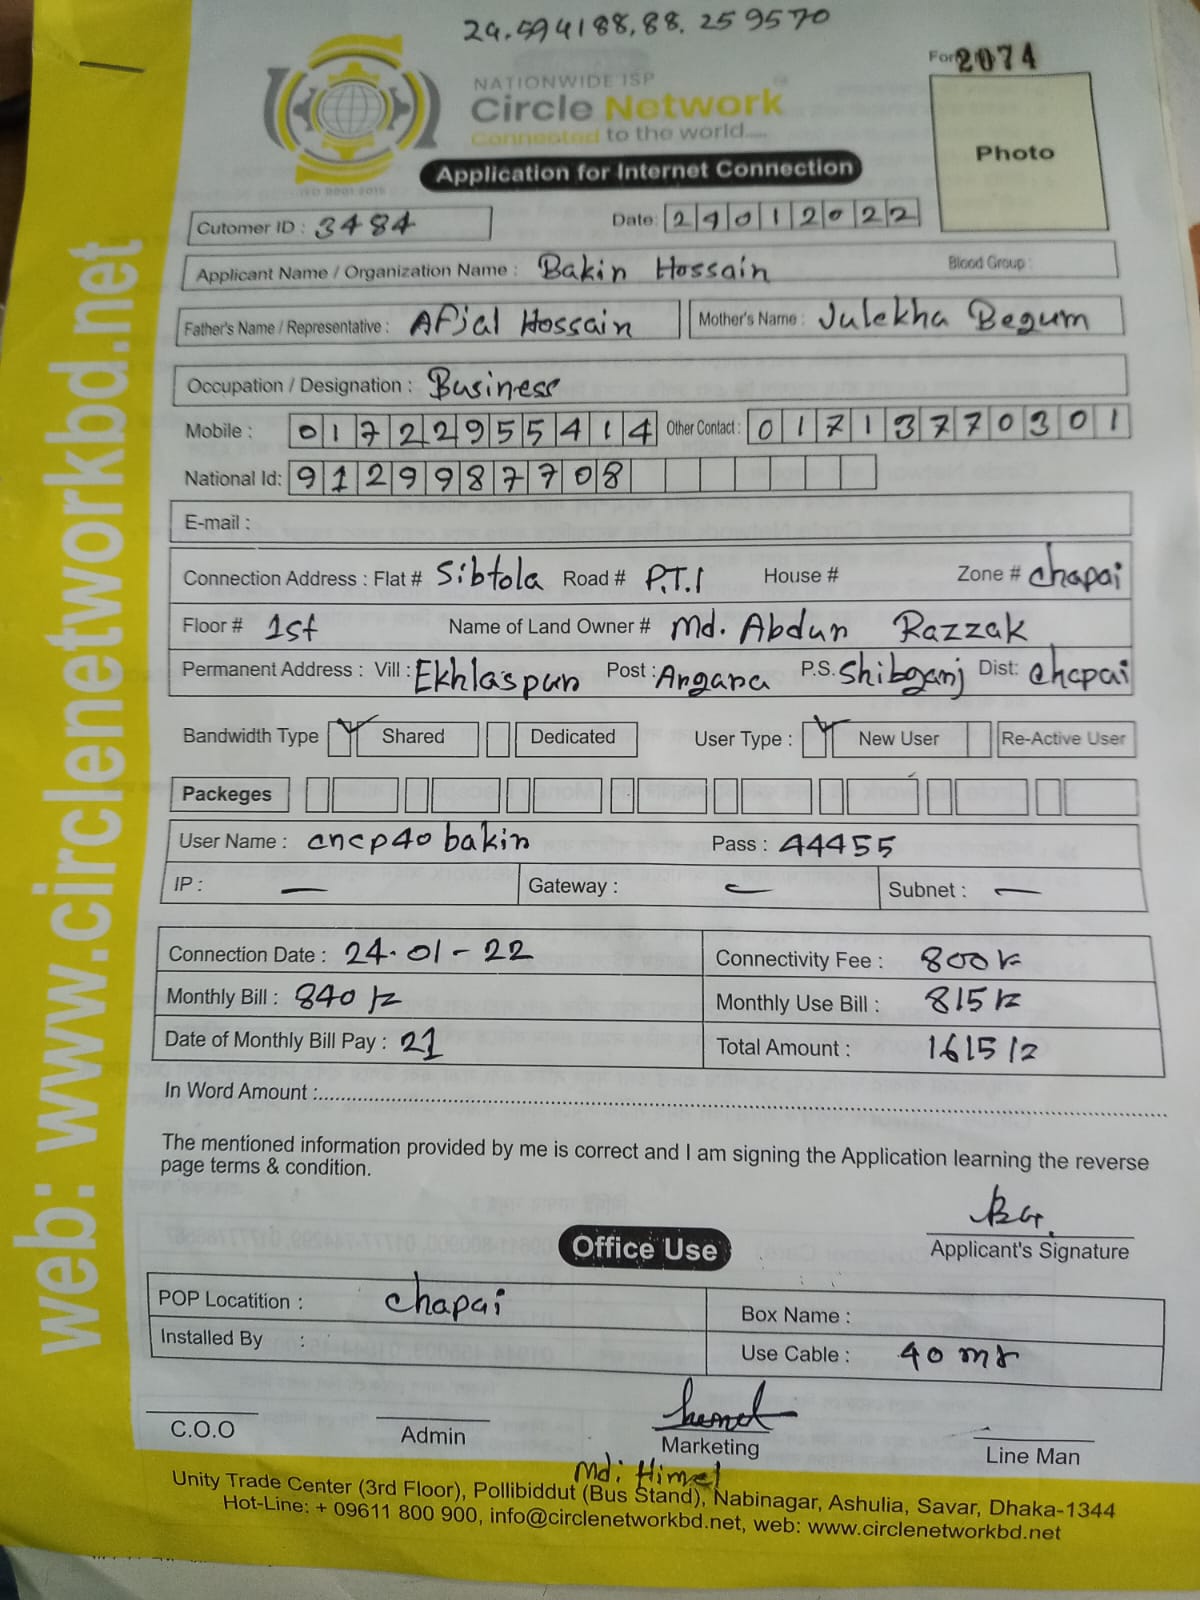 24.594188,88.259570
For 2074
NATIONWIDE ISP
Circle Network
Connected to the world....
ISO 9001:2015
Photo
Application for Internet Connection
Cutomer ID : 3484 Date: 24012022
Applicant Name / Organization Name : Bakin Hossain Blood Group :
Father's Name / Representative : Afjal Hossain Mother's Name : Julekha Begum
Occupation / Designation : Business
Mobile : 01722955414 Other Contact : 01713770301
National Id: 9129987708
E-mail :
Connection Address : Flat # Sibtola Road # P.T.I House # Zone # chapai
Floor # 1st Name of Land Owner # Md. Abdur Razzak
Permanent Address : Vill : Ekhlaspur Post : Angara P.S. Shibganj Dist: chapai
Bandwidth Type Shared Dedicated User Type : New User Re-Active User
Packeges
User Name : cncp40bakin Pass : 44455
IP : — Gateway : — Subnet : —
Connection Date : 24-01-22 Connectivity Fee : 800
Monthly Bill : 840 Monthly Use Bill : 815
Date of Monthly Bill Pay : 21 Total Amount : 1615
In Word Amount :
The mentioned information provided by me is correct and I am signing the Application learning the reverse
page terms & condition.
Applicant's Signature
Office Use
POP Locatition : chapai Box Name :
Installed By : Use Cable : 40 mr
C.O.O Admin Marketing Line Man
Md. Himel
Unity Trade Center (3rd Floor), Pollibiddut (Bus Stand), Nabinagar, Ashulia, Savar, Dhaka-1344
Hot-Line: + 09611 800 900, info@circlenetworkbd.net, web: www.circlenetworkbd.net
web: www.circlenetworkbd.net